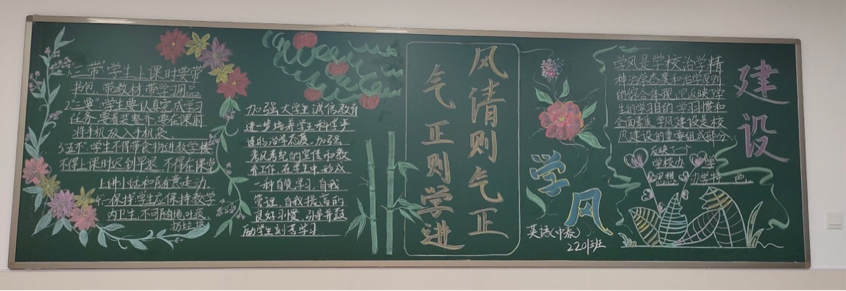 "三带"学生上课时要带
书包、带教材、带学习用品
"二要"学生要认真完成学习
任务、要着装整齐、要在课前
将手机放入手机袋
"五不"学生不得带食物进教学楼
不得上课时迟到早退、不得在课堂
上讲小话和随意走动
"一保持"学生应保持教学
内卫生、不可随地吐痰
扔垃圾
加强大学生诚信教育
进一步培养学生科学求
进的治学态度,加强
考风考纪的宣传和教
育工作,在学生中形成
一种自觉学习、自我
管理、自我提高的
良好习惯,引导并鼓
励学生刻苦学习
风清则气正
气正则学进
学风
英语(中泰)
2201班
学风是学校治学精
神、治学态度和治学原则
的综合体现,也反映学
生的学习目的、学习惯和
全面素质,学风建设是校
风建设的重要组成部分
反映一个
学校办学
思想
办学特色
建设